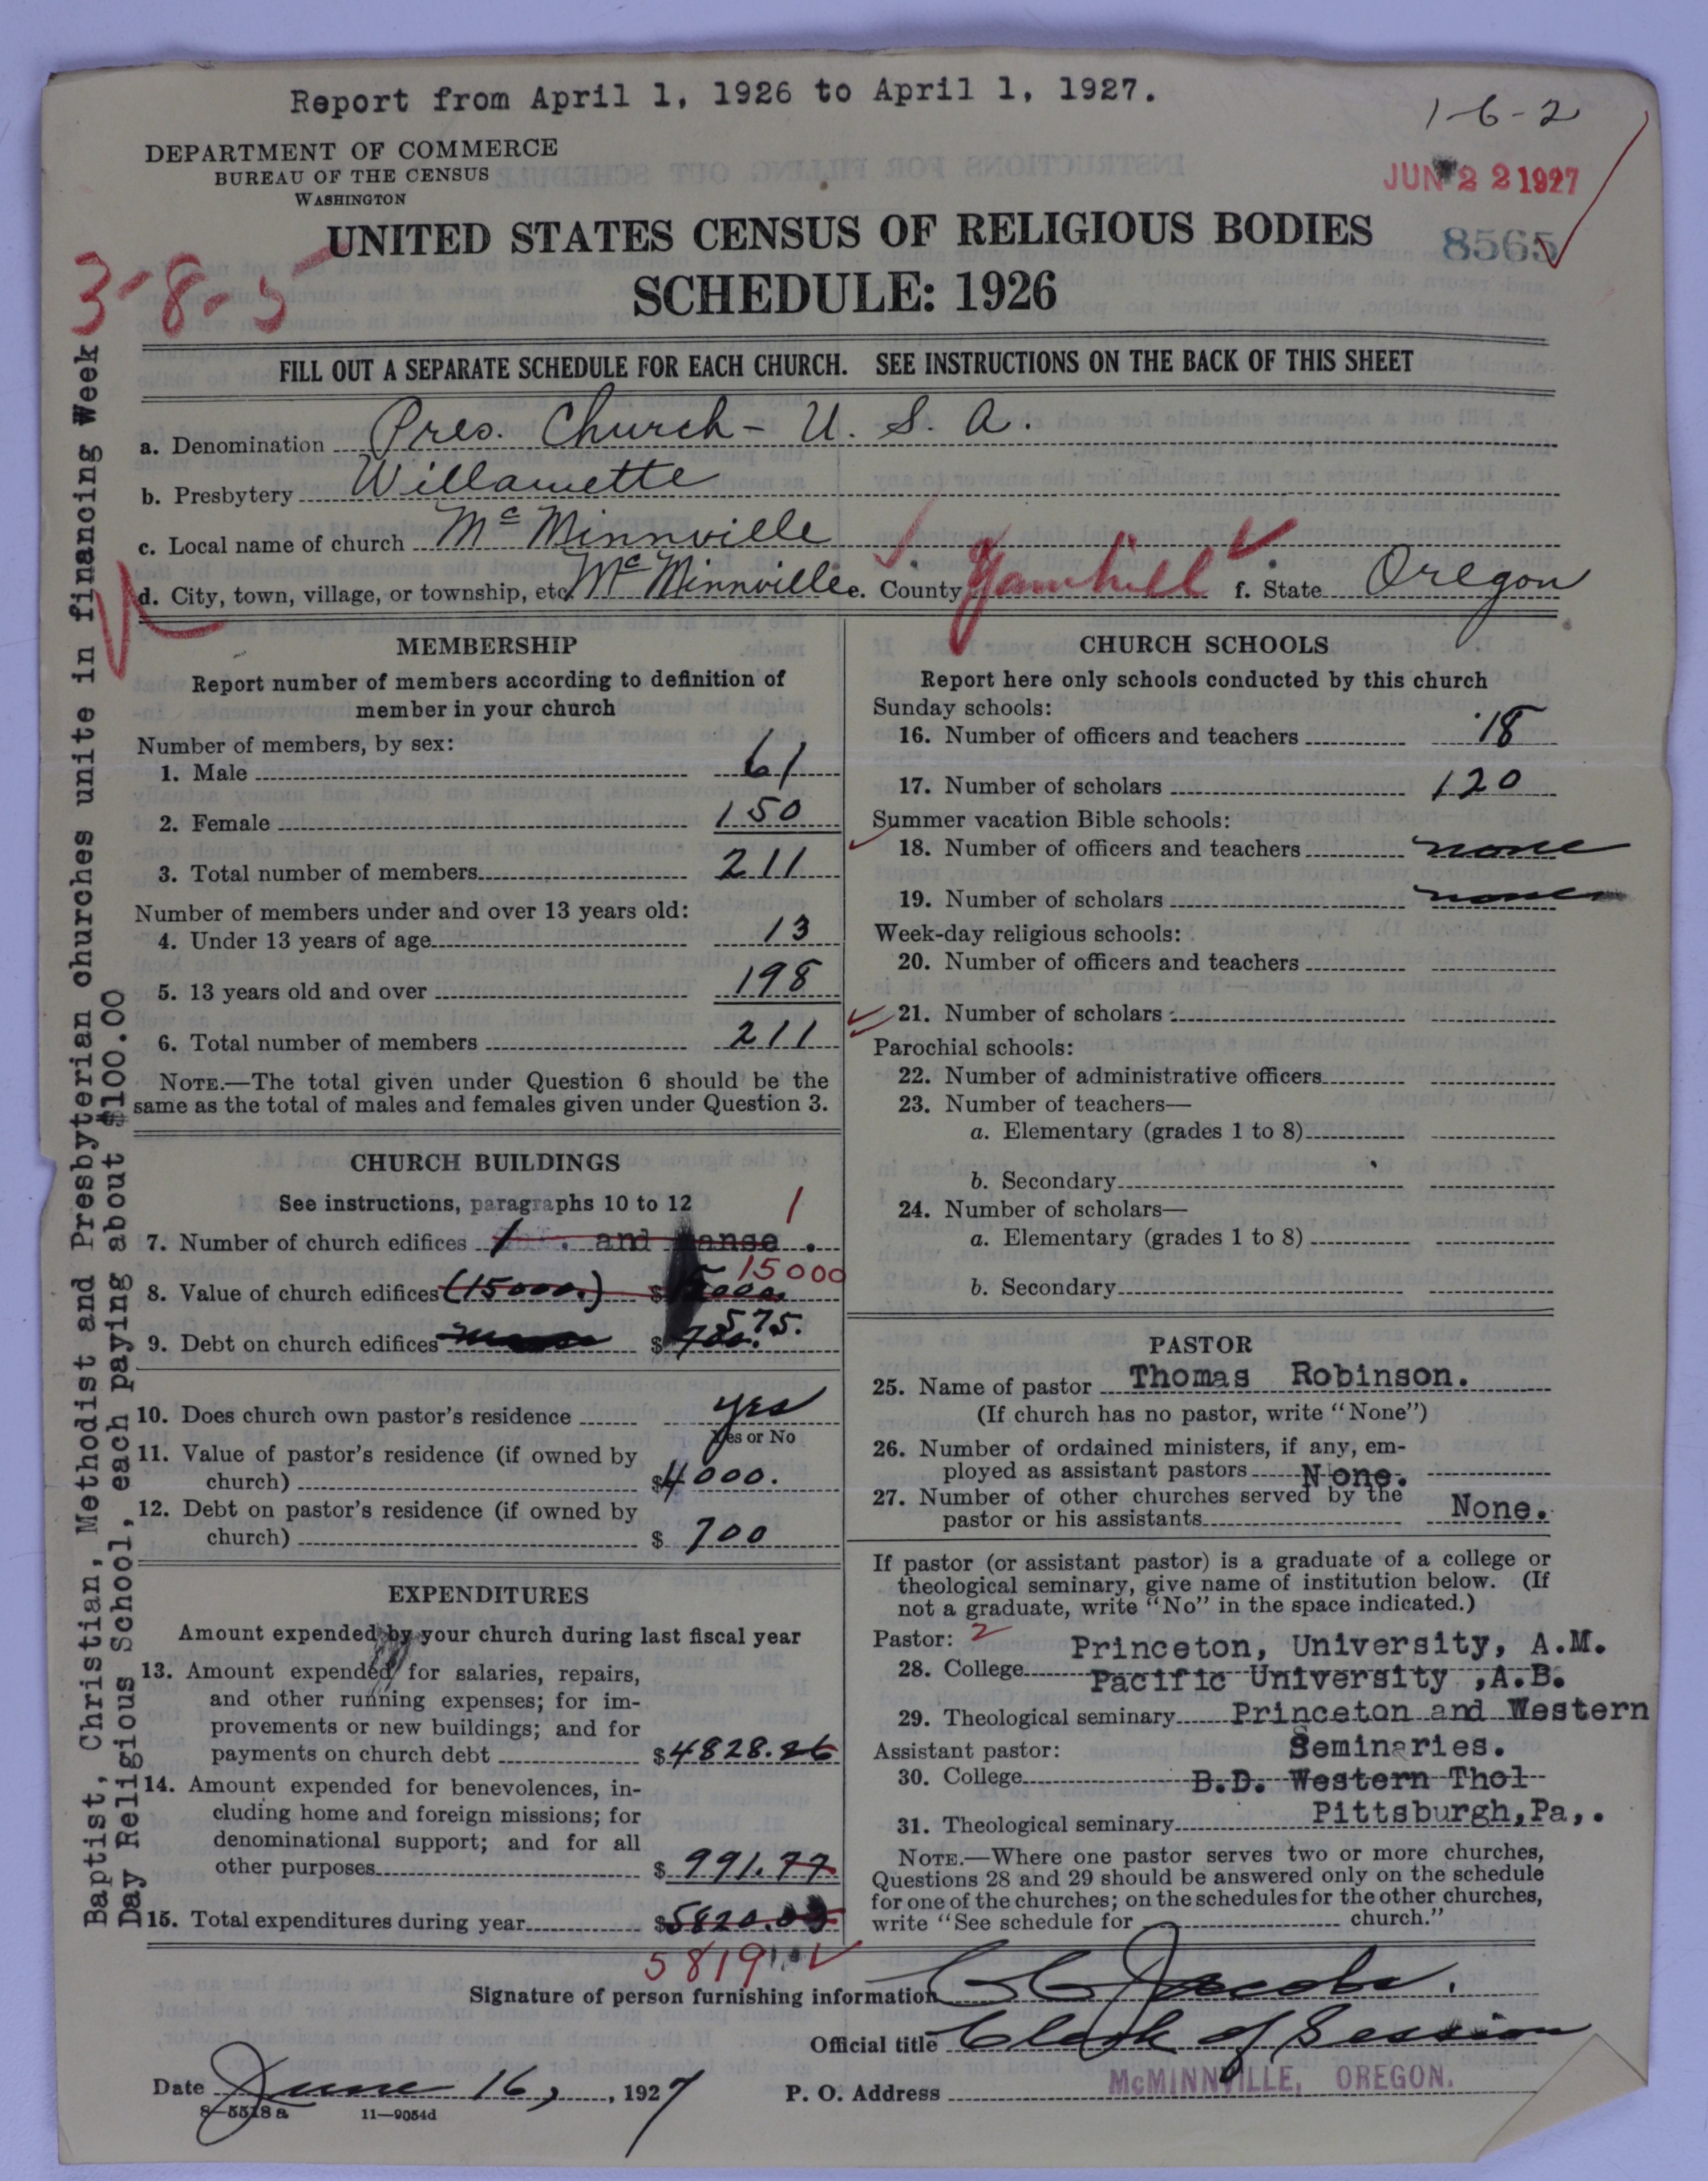 Report from April 1, 1926 to April 1, 1927.
1-6-2
DEPARTMENT OF COMMERCE
BUREAU OF THE CENSUS
WASHINGTON
JUN 22 1927
UNITED STATES CENSUS OF RELIGIOUS BODIES
8565
SCHEDULE: 1926
3-8-5
FILL OUT A SEPARATE SCHEDULE FOR EACH CHURCH. SEE INSTRUCTIONS ON THE BACK OF THIS SHEET
a. Denomination Pres. Church - U. S. A.
b. Presbytery Willamette
c. Local name of church McMinnville
d. City, town, village, or township, etc. McMinnville e. County Yamhill f. State Oregon
MEMBERSHIP
Report number of members according to definition of
member in your church
Number of members, by sex:
1. Male 61
2. Female 150
3. Total number of members 211
Number of members under and over 13 years old:
4. Under 13 years of age 13
5. 13 years old and over 198
6. Total number of members 211
NOTE.—The total given under Question 6 should be the
same as the total of males and females given under Question 3.
CHURCH BUILDINGS
See instructions, paragraphs 10 to 12
1
7. Number of church edifices 1 and manse.
15000
8. Value of church edifices (15000.) $
575.
9. Debt on church edifices $ 700.
10. Does church own pastor's residence yes
Yes or No
11. Value of pastor's residence (if owned by
church) $4000.
12. Debt on pastor's residence (if owned by
church) $ 700
EXPENDITURES
Amount expended by your church during last fiscal year
13. Amount expended for salaries, repairs,
and other running expenses; for im-
provements or new buildings; and for
payments on church debt $4828.26
14. Amount expended for benevolences, in-
cluding home and foreign missions; for
denominational support; and for all
other purposes $ 991.77
15. Total expenditures during year $5820.03
5819
CHURCH SCHOOLS
Report here only schools conducted by this church
Sunday schools:
16. Number of officers and teachers 18
17. Number of scholars 120
Summer vacation Bible schools:
18. Number of officers and teachers none
19. Number of scholars none
Week-day religious schools:
20. Number of officers and teachers
21. Number of scholars
Parochial schools:
22. Number of administrative officers
23. Number of teachers—
a. Elementary (grades 1 to 8)
b. Secondary
24. Number of scholars—
a. Elementary (grades 1 to 8)
b. Secondary
PASTOR
25. Name of pastor Thomas Robinson.
(If church has no pastor, write "None")
26. Number of ordained ministers, if any, em-
ployed as assistant pastors None.
27. Number of other churches served by the
pastor or his assistants None.
If pastor (or assistant pastor) is a graduate of a college or
theological seminary, give name of institution below. (If
not a graduate, write "No" in the space indicated.)
Pastor: 2 Princeton, University, A.M.
28. College Pacific University ,A.B.
29. Theological seminary Princeton and Western
Assistant pastor: Seminaries.
30. College B.D. Western Thol
31. Theological seminary Pittsburgh,Pa,.
NOTE.—Where one pastor serves two or more churches,
Questions 28 and 29 should be answered only on the schedule
for one of the churches; on the schedules for the other churches,
write "See schedule for church."
Signature of person furnishing information C C Jacobs.
Official title Clerk of Session
Date June 16, 1927 P. O. Address McMINNVILLE, OREGON.
8-5518a 11-9054d
Baptist, Christian, Methodist and Presbyterian churches unite in financing Week
Day Religious School, each paying about $100.00